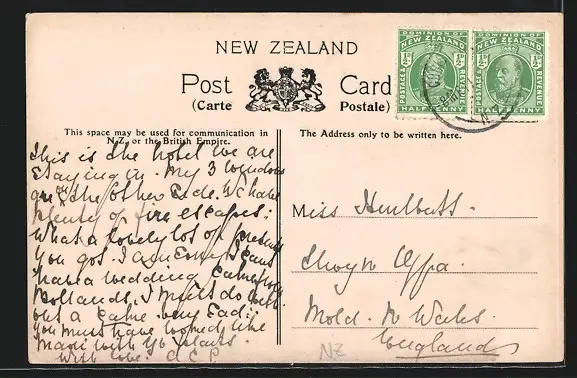 NEW ZEALAND
Post Card
(Carte Postale)
DOMINION OF
NEW ZEALAND
½D
POSTAGE &
REVENUE
HALF PENNY
DOMINION OF
NEW ZEALAND
½D
POSTAGE &
REVENUE
HALF PENNY
This space may be used for communication in
N.Z. or the British Empire.
The Address only to be written here.
This is the hotel we are
staying in. My 3 windows
are on the other side. We have
plenty of fire escapes:
What a lovely lot of presents
you got. I am sorry I cant
have a wedding cake from
I must do with
out a cake. very sad:
you must have looked like
with yr
With love. C.C.P.
Miss Hurlbutt.
Mold. N Wales.
England
NZ